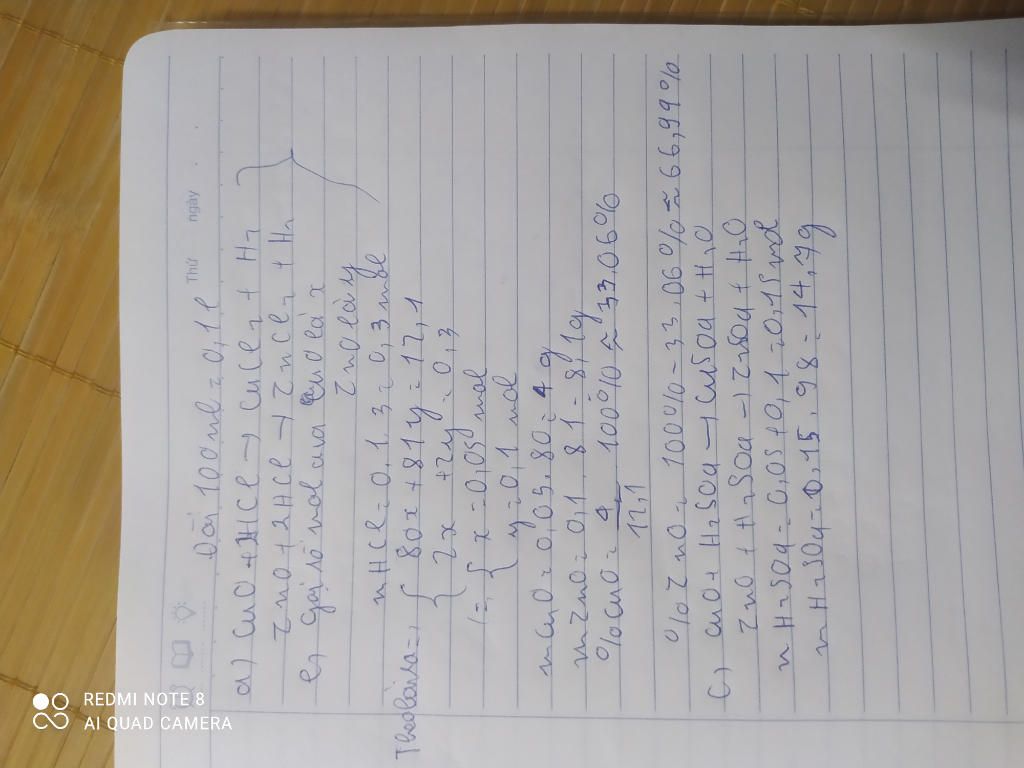 Thứ
ngày
Đổi 100ml = 0,1 l
a) CuO + 2HCl → CuCl2 + H2
ZnO + 2HCl → ZnCl2 + H2
Gọi số mol của CuO là x
ZnO là y
nHCl = 0,1.3 = 0,3 mol
Theo bài ra => { 80x + 81y = 12,1
2x + 2y = 0,3
{ x = 0,05 mol
y = 0,1 mol
mCuO = 0,05.80 = 4g
mZnO = 0,1.81 = 8,1g
%CuO = 4/12,1 100% ≈ 33,06%
%ZnO = 100% - 33,06% ≈ 66,99%
c) CuO + H2SO4 → CuSO4 + H2O
ZnO + H2SO4 → ZnSO4 + H2O
nH2SO4 = 0,05 + 0,1 = 0,15 mol
mH2SO4 = 0,15.98 = 14,7g
REDMI NOTE 8
AI QUAD CAMERA